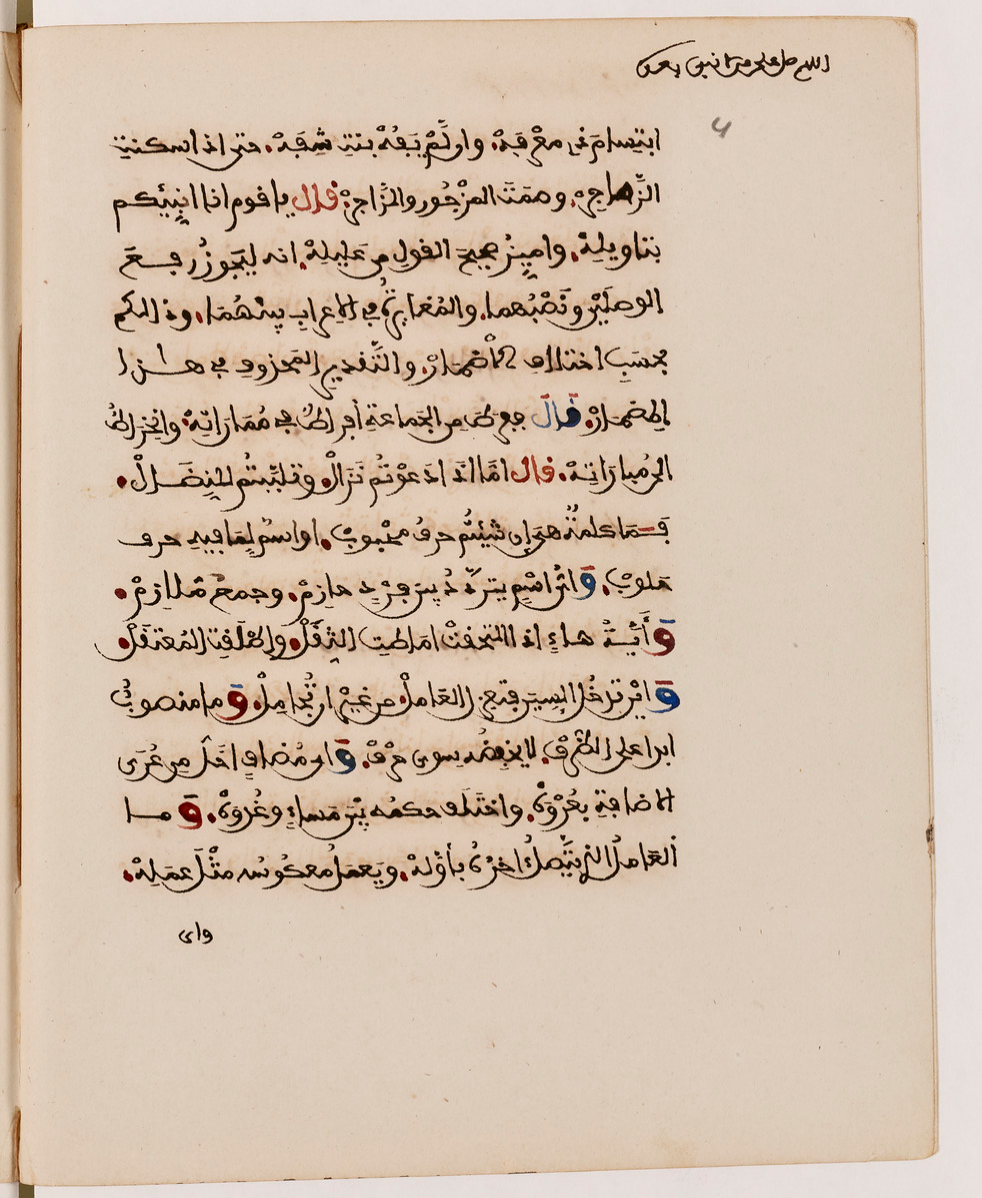 ابتسام ذي معرفة، وان لم يفه ببنت شفة، حتى اذا سكنت
الزماجر، وصمت المزجور والزاجر، قال يا قوم انا انبئكم
بتاويله، واميز صحيح القول من عليله، انه ليجوز رفع
الوصلين ونصبهما، والمغايرة في الاعراب بينهما، وذالكم
بحسب اختلاف الاضمار، والتقدير المحذوف في هاذا
المضمار، قال ففرط من الجماعة افراط في مماراته، وانخراط
الى مباراته، قال اما اذا دعوتم نزال، وتلببتم للنضال،
فما كلمة هي ان شئتم حرف محبوب، او اسم لما فيه حرف
حلوب، واي اسم يتردد بين فرد حازم، وجمع ملازم،
وأية هاء اذا التحقت اماطت الثقل، واطلقت المعتقل،
واين تدخل السين فتعزل العامل، من غير ان تجامل، وما منصوب
ابدا على الظرف، لا يخفضه سوى حرف، واي مضاف اخل من عرى
الاضافة بعروة، واختلف حكمه بين مساء وغدوة، وما
العامل الذي يتصل اخره بأوله، ويعمل معكوسه مثل عمله،
واى